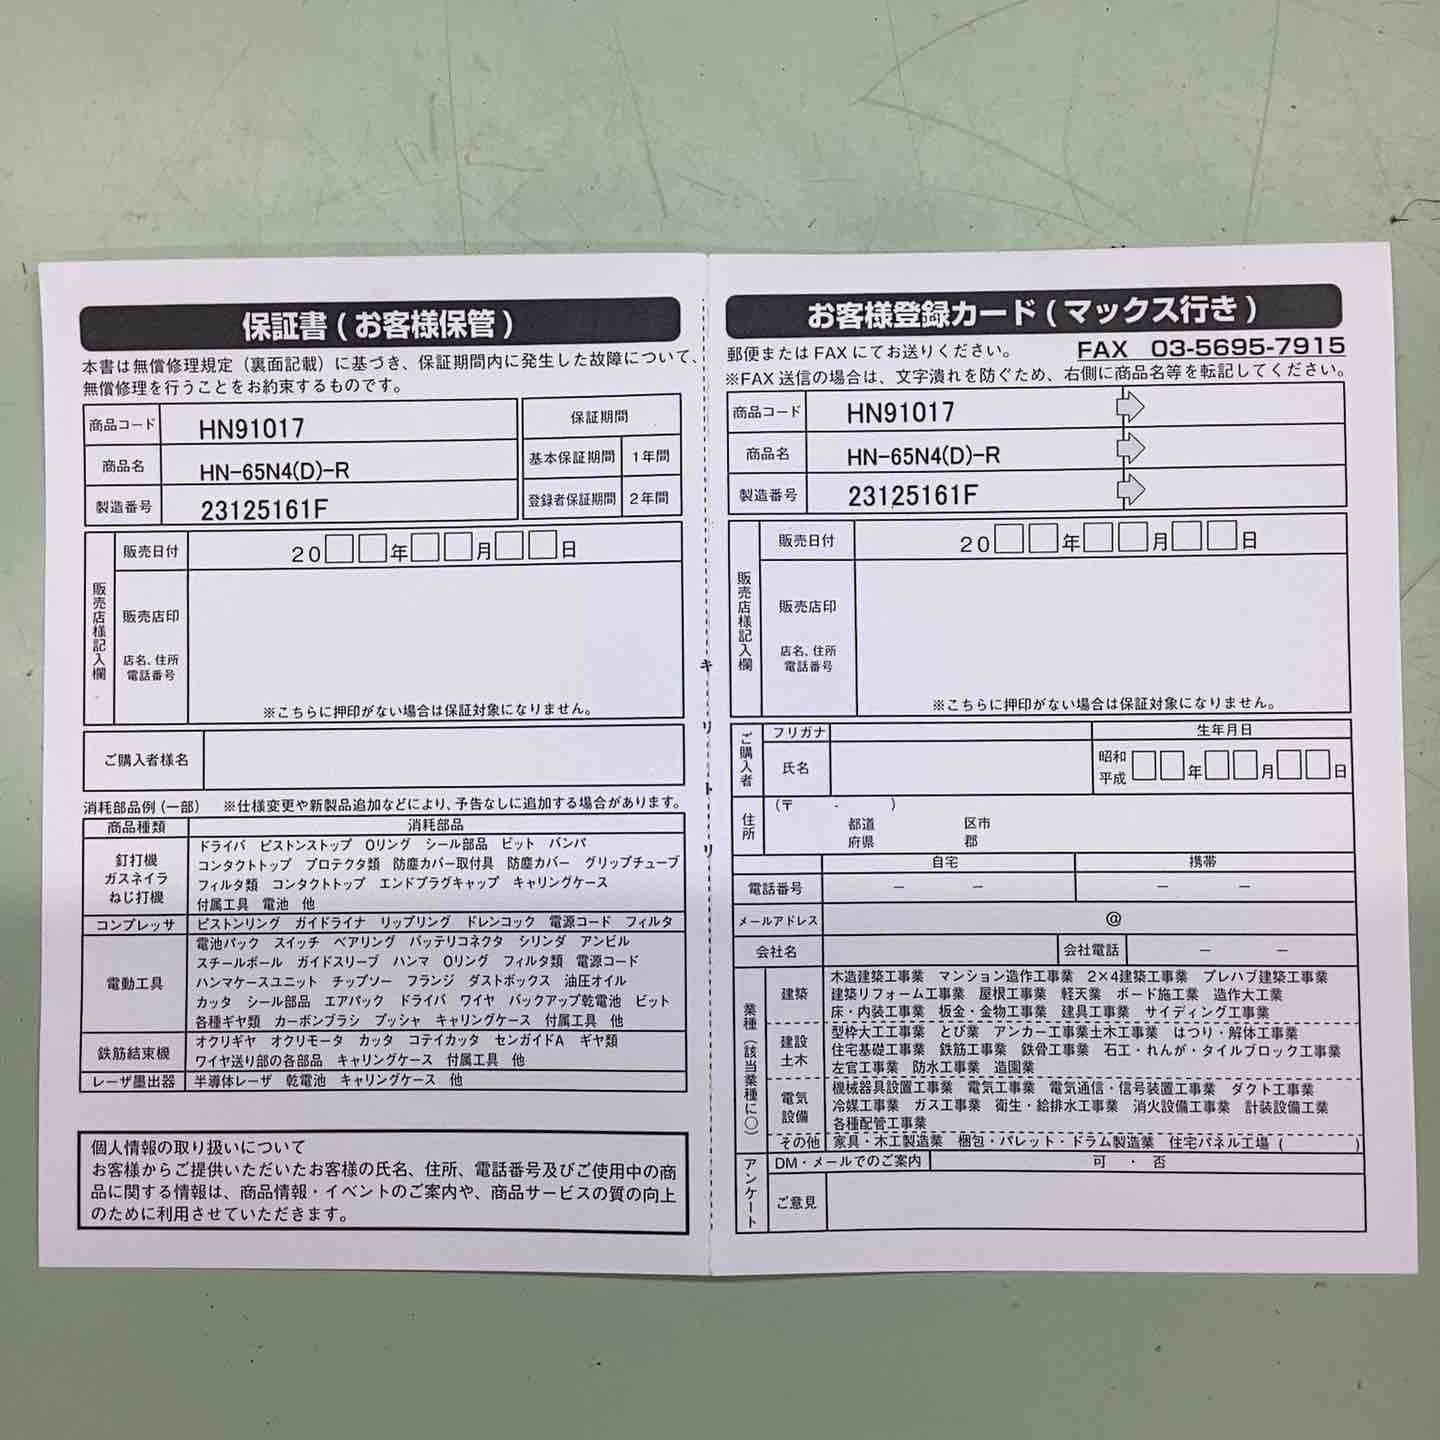 保証書(お客様保管)
本書は無償修理規定(裏面記載)に基づき、保証期間内に発生した故障について、
無償修理を行うことをお約束するものです。
商品コード HN91017
商品名 HN-65N4(D)-R
製造番号 23125161F
保証期間
基本保証期間 1年間
登録者保証期間 2年間
販売店様記入欄
販売日付 20□□年□□月□□日
販売店印
店名、住所
電話番号
※こちらに押印がない場合は保証対象になりません。
ご購入者様名
消耗部品例(一部) ※仕様変更や新製品追加などにより、予告なしに追加する場合があります。
商品種類 消耗部品
釘打機
ガスネイラ
ねじ打機
ドライバ ピストンストップ Oリング シール部品 ビット バンパ
コンタクトトップ プロテクタ類 防塵カバー取付具 防塵カバー グリップチューブ
フィルタ類 コンタクトトップ エンドプラグキャップ キャリングケース
付属工具 電池 他
コンプレッサ ピストンリング ガイドライナ リップリング ドレンコック 電源コード フィルタ
電動工具
電池パック スイッチ ベアリング バッテリコネクタ シリンダ アンビル
スチールボール ガイドスリーブ ハンマ Oリング フィルタ類 電源コード
ハンマケースユニット チップソー フランジ ダストボックス 油圧オイル
カッタ シール部品 エアパック ドライバ ワイヤ バックアップ乾電池 ビット
各種ギヤ類 カーボンブラシ プッシャ キャリングケース 付属工具 他
鉄筋結束機
オクリギヤ オクリモータ カッタ コテイカッタ センガイドA ギヤ類
ワイヤ送り部の各部品 キャリングケース 付属工具 他
レーザ墨出器 半導体レーザ 乾電池 キャリングケース 他
個人情報の取り扱いについて
お客様からご提供いただいたお客様の氏名、住所、電話番号及びご使用中の商
品に関する情報は、商品情報・イベントのご案内や、商品サービスの質の向上
のために利用させていただきます。
キリトリ
お客様登録カード(マックス行き)
郵便またはFAXにてお送りください。 FAX 03-5695-7915
※FAX送信の場合は、文字潰れを防ぐため、右側に商品名等を転記してください。
商品コード HN91017
商品名 HN-65N4(D)-R
製造番号 23125161F
販売店様記入欄
販売日付 20□□年□□月□□日
販売店印
店名、住所
電話番号
※こちらに押印がない場合は保証対象になりません。
ご購入者
フリガナ 生年月日
氏名
昭和
平成 □□年□□月□□日
住所
(〒 - )
都道 区市
府県 郡
自宅 携帯
電話番号 ー ー ー ー
メールアドレス @
会社名 会社電話 ー ー
業種(該当業種に○)
建築
木造建築工事業 マンション造作工事業 2×4建築工事業 プレハブ建築工事業
建築リフォーム工事業 屋根工事業 軽天業 ボード施工業 造作大工業
床・内装工事業 板金・金物工事業 建具工事業 サイディング工事業
建設
土木
型枠大工工事業 とび業 アンカー工事業土木工事業 はつり・解体工事業
住宅基礎工事業 鉄筋工事業 鉄骨工事業 石工・れんが・タイルブロック工事業
左官工事業 防水工事業 造園業
電気
設備
機械器具設置工事業 電気工事業 電気通信・信号装置工事業 ダクト工事業
冷媒工事業 ガス工事業 衛生・給排水工事業 消火設備工事業 計装設備工業
各種配管工事業
その他 家具・木工製造業 梱包・パレット・ドラム製造業 住宅パネル工場 ( )
アンケート
DM・メールでのご案内 可 ・ 否
ご意見